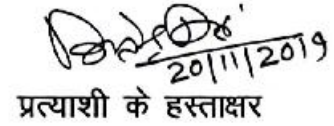 20/11/2019
प्रत्याशी के हस्ताक्षर